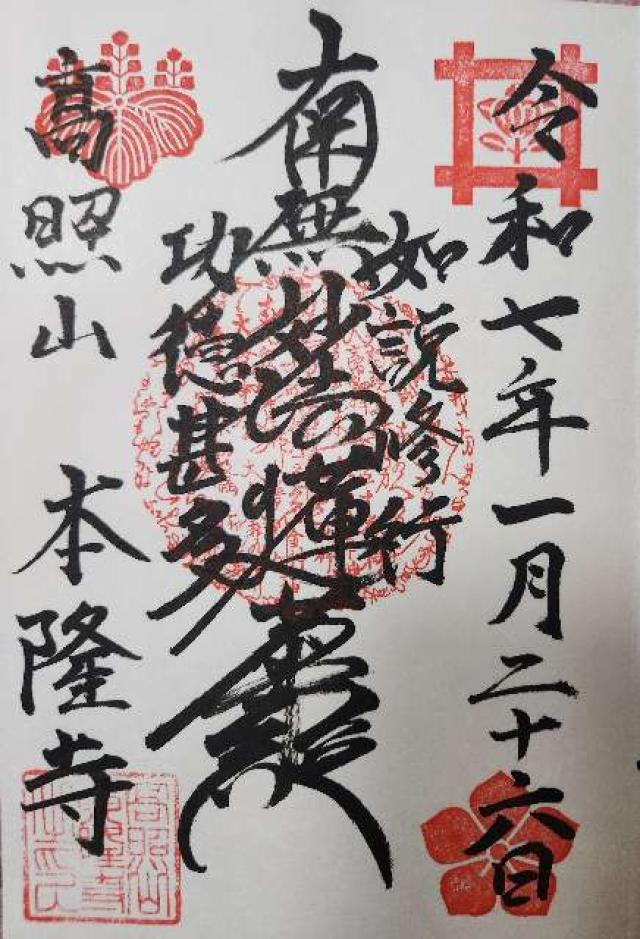 令和七年一月二十六日
如説修行
南無妙法蓮華経
功徳甚多
高照山 本隆寺